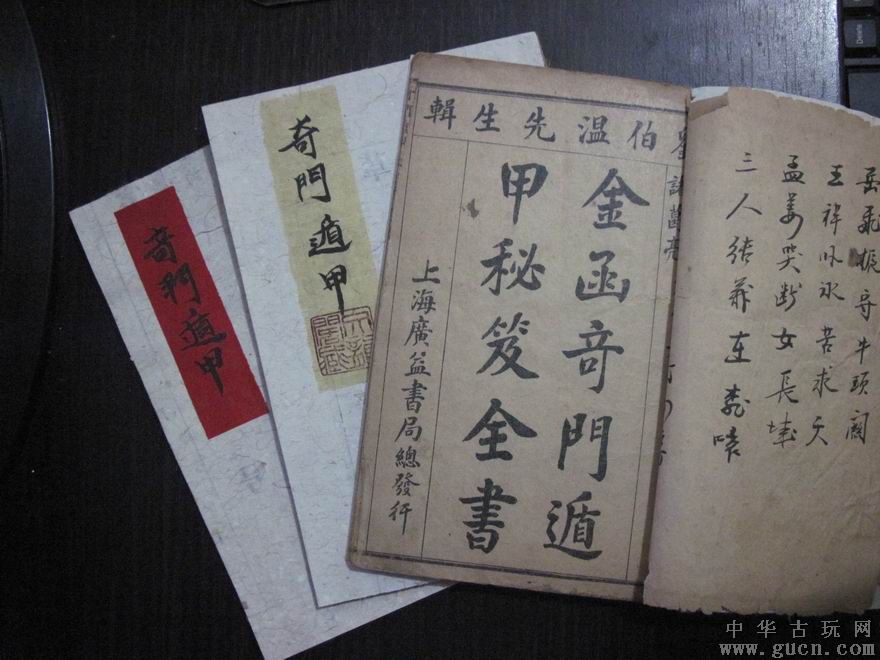 奇門遁甲
奇門遁甲
劉伯溫先生輯
諸葛亮
金函奇門遁
甲秘笈全書
上海廣益書局總發行
岳飛振守牛頭
王祥臥冰苦求天
孟姜哭断女長城
三人結義在
Delete
中华古玩网
www.gucn.com